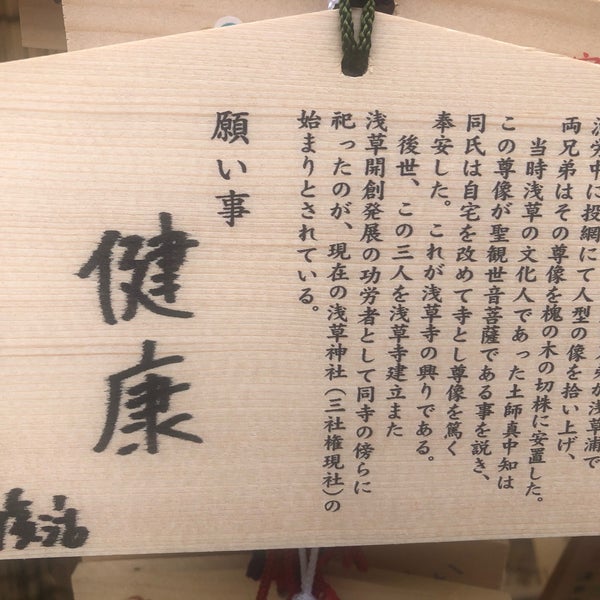 漁労中に投網にて人型の像を拾い上げ、
両兄弟はその尊像を槐の木の切株に安置した。
当時浅草の文化人であった土師真中知は
この尊像が聖観世音菩薩である事を説き、
同氏は自宅を改めて寺とし尊像を篤く
奉安した。これが浅草寺の興りである。
後世、この三人を浅草寺建立また
浅草開創発展の功労者として同寺の傍らに
祀ったのが、現在の浅草神社(三社権現社)の
始まりとされている。
願い事
健康